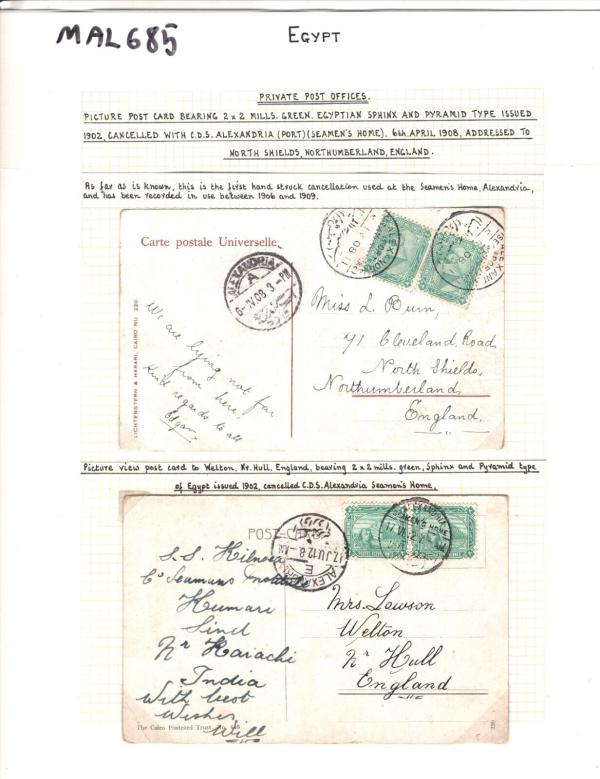 MAL685
EGYPT
PRIVATE POST OFFICES.
PICTURE POST CARD BEARING 2 x 2 MILLS. GREEN. EGYPTIAN SPHINX AND PYRAMID TYPE ISSUED
1902, CANCELLED WITH C.D.S. ALEXANDRIA (PORT) (SEAMEN'S HOME). 6th. APRIL 1908, ADDRESSED TO
NORTH SHIELDS, NORTHUMBERLAND, ENGLAND.
As far as is known, this is the first hand struck cancellation used at the Seamen's Home, Alexandria,
and has been recorded in use between 1906 and 1909.
Carte postale Universelle
ALEXANDRIA
A
6-IV.08. 3-PM
We are lying not far
from here.
Kind regards to all
Edgar
LICHTENSTERN & HARARI, CAIRO NO. 220
Miss L. Burn,
71 Cleveland Road
North Shields,
Northumberland,
England,
Picture view post card to Welton, Nr. Hull. England, bearing 2 x 2 mills. green, Sphinx and Pyramid type
of Egypt issued 1902, cancelled C.D.S. Alexandria Seamen's Home.
POST-C
17.JU.12.8
E
ALEXANDRIA
SEAMEN'S HOME
17 VI
S.S. Kilnsea
C/o Seamans
Kumari
Sind
Nr Karachi
India
With best
Wishes
Will
Mrs. Lawson
Welton
Nr Hull
England
The Cairo Postcard Trust,